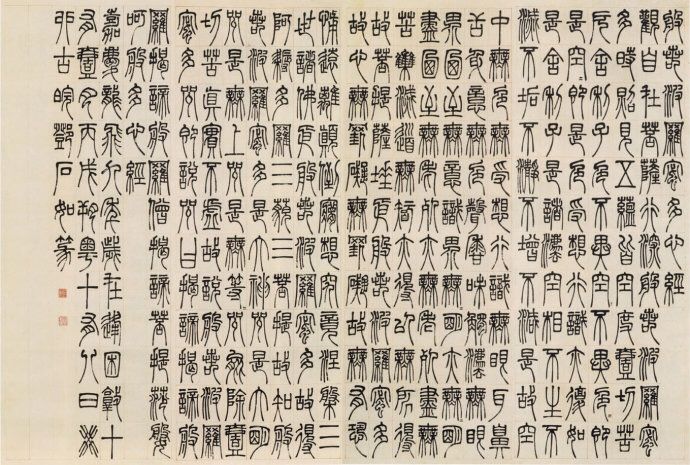 般若波羅密多心經
觀自在菩薩行深般若波羅密
多時照見五蘊皆空度壹切苦
厄舍利子色不異空空不異色即
是空空即是色受想行識亦復如
是舍利子是諸法空相不生不
滅不垢不淨不增不減是故空
中無色無受想行識無眼耳鼻
舌身意無色聲香味觸法無眼
界乃至無意識界無無明亦無無明
盡乃至無老死亦無老死盡無
苦集滅道無智亦無得以無所得
故菩提薩埵依般若波羅密多
故心無罣礙無罣礙故無有恐
怖遠離顛倒夢想究竟涅槃三
世諸佛依般若波羅密多故得
阿耨多羅三藐三菩提故知般
若波羅密多是大神咒是大明
咒是無上咒是無等等咒能除壹
切苦真實不虛故說般若波羅
密多咒即說咒曰揭諦揭諦般
羅揭諦般羅僧揭諦菩提薩婆
呵般若多心經
嘉慶龍飛九年歲在逢困敦十
有壹月丙戌朔粵十有八日癸
卯古皖鄧石如篆